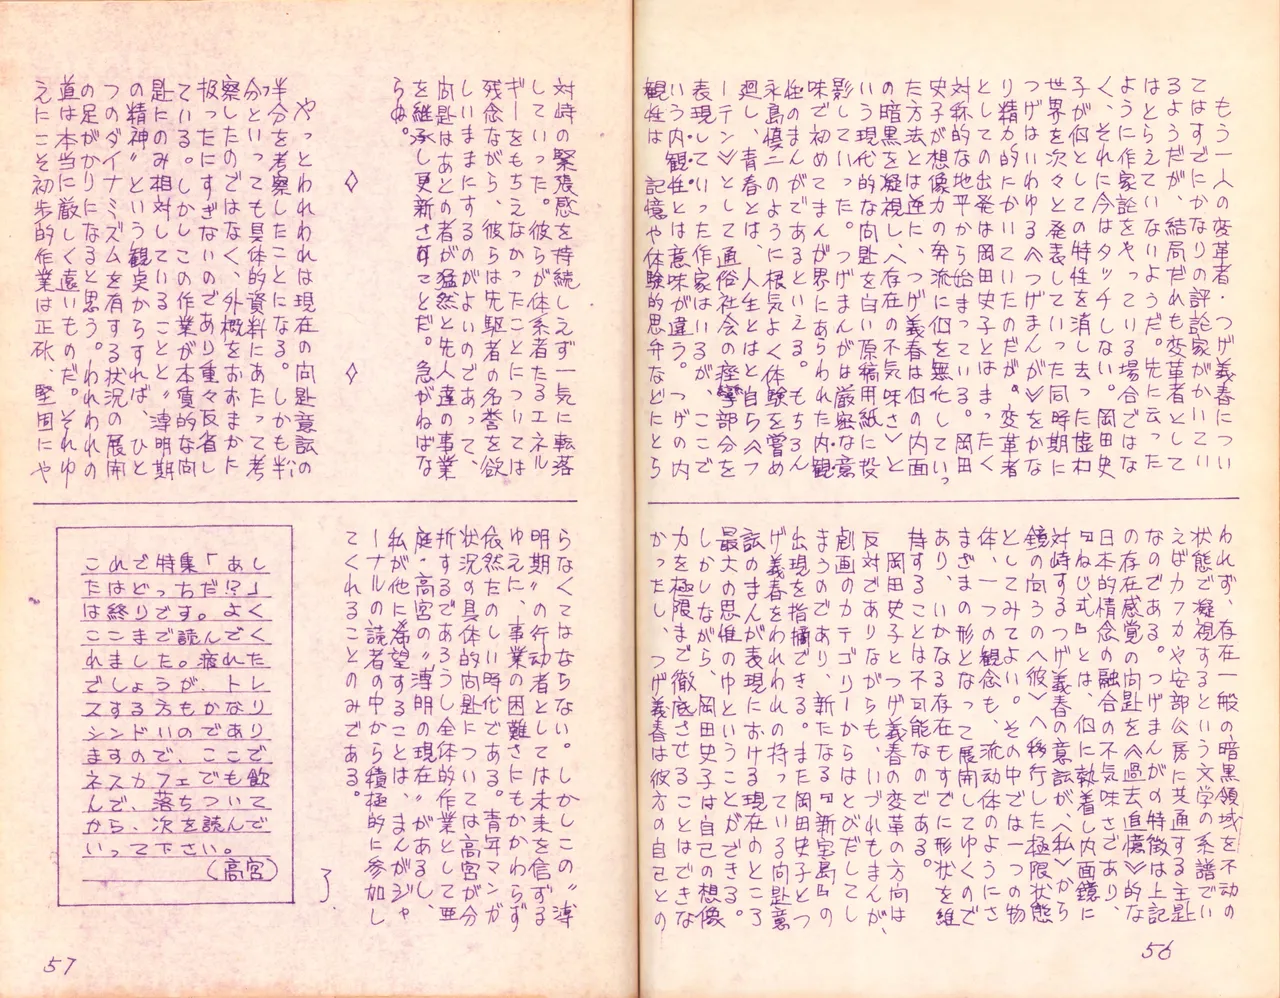 もう一人の変革者・つげ義春につい
てはすでにかなりの評論家がかいてい
るようだが、結局だれも変革者として
はとらえていないようだ。先に云った
ように作家論をやってりる場合ではな
く、それに今はタッチしない。岡田史
子が個としての特性を消し去った虚わ
世界を次々と発表していった同時期に
つげはいわゆる〈つげまんが〉をかな
り精力的にかいていたのだが。変革者
としての出発は岡田史子とはまったく
対称的な地平から始まっている。岡田
史子が想像力の奔流に個を無化していっ
た方法とは逆に、つげ義春は個の内面
の暗黒を凝視し、〈存在の不気味さ〉と
いう現代的な问題を白い原稿用紙に投
影していった。つげまんがは厳密な意
味で初めてまんが界にあらわれた内観
性のまんがであるといえる。もちろん
永島慎二のように根気よく体験を嘗め
廻し、青春とは、人生とはと自らへフ
ーテン〉として通俗社会の痙攣部分を
表現していった作家はいるが、ここで
いう内観性とは意味が違う。つげの内
観性は 記憶や体験的思弁などにとら
われず、存在一般の暗黒領域を不動の
状態で凝視するという文学の系譜でい
えばカフカや安部公房に共通する主題
なのである。つげまんがの特徴は上記
の存在感覚の问題を〈過去追憶〉的な
日本的情念の融合の不気味さであり、
『ねじ式』とは、個に執着し内面鏡に
対峙するつげ義春の意識が、〈私〉から
鏡の向うの〈彼〉へ移行した極限状態
としてみてよい。その中では一つの物
体、一つの観念も、流動体のようにさ
まざまの形となって展開してゆくので
あり、いかなる存在もすでに形状を維
持することは不可能なのである。
岡田史子とつげ義春の変革の方向は
反対でありながらも、いづれもまんが、
劇画のカテゴリーからはとびだしてし
まうのであり、新たなる『新宝島』の
出現を指摘できる。また岡田史子とつ
げ義春をわれわれの持っている问題意
識のまんが表現における現在のところ
最大の思惟のゆということができる。
しかしながら、岡田史子は自己の想像
力を極限まで徹底させることはできな
かったし、つげ義春は彼方の自己との
56
対峙の緊張感を持続しえず一気に転落
していった。彼らが体系者たるエネル
ギーをもちえなかったことについては
残念ながら、彼らは先駆者の名誉を欲
しいままにするのがよいのであって、
问題はあとの者が猛然と先人達の事業
を継承し更新さすことだ。急がねばな
らぬ。
◇ ◇
やっとわれわれは現在の问題意識の
半分を考察したことになる。しかも半
分といっても具体的資料にあたって考
察したのではなく、外概をおおまかに
扱ったにすぎないのであり重々反省し
ている。しかしこの作業が本質的な问
題にのみ相対していることと〝溥明期
の精神〟という観点からすれば、ひと
つのダイナミズムを有する状況の展開
の足がかりになると思う。われわれの
道は本当に厳しく遠いものだ。それゆ
えにこそ初歩的作業は正確、堅固にや
らなくてはならない。しかしこの〝溥
明期〟の行動者としては未来を信ずる
ゆえに、事業の困難さにもかかわらず
依然たのしい時代である。青年マンガ
状況の具体的问題については高宮が分
析するであろうし全体的作業として亜
庭・高宮の〝溥明の現在〟があるし、
私が他に希望することは、まんがジャ
ーナルの読者の中から積極的に参加し
てくれることのみである。
これで特集「あし
たはどっちだ!?」
は終りです。よく
ここまで読んでく
れました。疲れた
でしょうが、トレ
スする方もかなり
シンドいのであり
ますので、ここで
ネスカフェでも飲
んで、落ちついて
から、次を読んで
いって下さい。
(高宮)
57